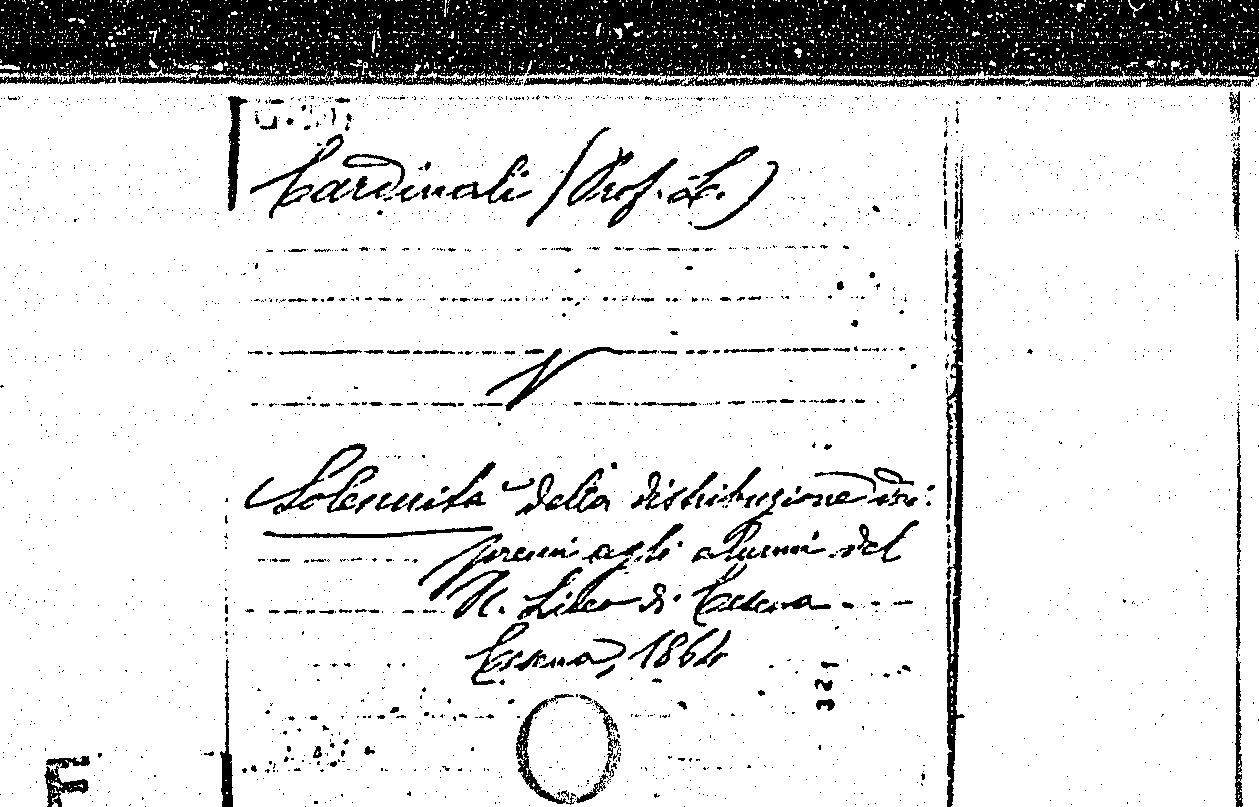 Cardinali (Prof. L.)
V
Solennità della distribuzione dei
premi agli alunni del
R. Liceo di Cesena
Cesena, 1864
321
E